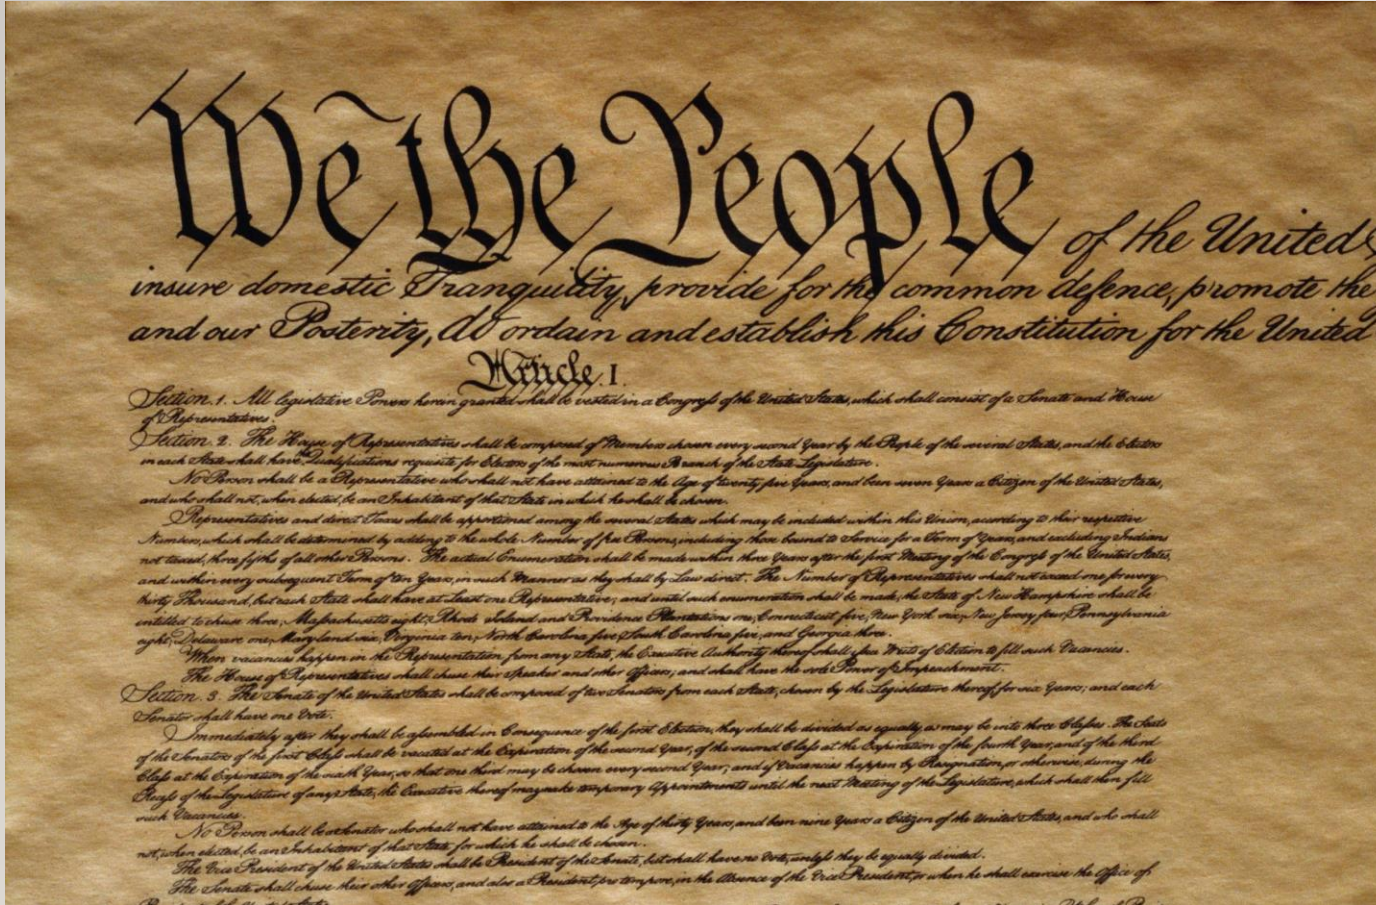 We the People of the United
insure domestic Tranquility, provide for the common defence, promote the
and our Posterity, do ordain and establish this Constitution for the United
Article. I.
Section. 1. All legislative Powers herein granted shall be vested in a Congress of the United States, which shall consist of a Senate and House
of Representatives.
Section. 2. The House of Representatives shall be composed of Members chosen every second Year by the People of the several States, and the Electors
in each State shall have the Qualifications requisite for Electors of the most numerous Branch of the State Legislature.
No Person shall be a Representative who shall not have attained to the Age of twenty five Years, and been seven Years a Citizen of the United States,
and who shall not, when elected, be an Inhabitant of that State in which he shall be chosen.
Representatives and direct Taxes shall be apportioned among the several States which may be included within this Union, according to their respective
Numbers, which shall be determined by adding to the whole Number of free Persons, including those bound to Service for a Term of Years, and excluding Indians
not taxed, three fifths of all other Persons. The actual Enumeration shall be made within three Years after the first Meeting of the Congress of the United States,
and within every subsequent Term of ten Years, in such Manner as they shall by Law direct. The Number of Representatives shall not exceed one for every
thirty Thousand, but each State shall have at Least one Representative; and until such enumeration shall be made, the State of New Hampshire shall be
entitled to chuse three, Massachusetts eight, Rhode Island and Providence Plantations one, Connecticut five, New York six, New Jersey four, Pennsylvania
eight, Delaware one, Maryland six, Virginia ten, North Carolina five, South Carolina five, and Georgia three.
When vacancies happen in the Representation from any State, the Executive Authority thereof shall issue Writs of Election to fill such Vacancies.
The House of Representatives shall chuse their Speaker and other Officers; and shall have the sole Power of Impeachment.
Section. 3. The Senate of the United States shall be composed of two Senators from each State, chosen by the Legislature thereof, for six Years; and each
Senator shall have one Vote.
Immediately after they shall be assembled in Consequence of the first Election, they shall be divided as equally as may be into three Classes. The Seats
of the Senators of the first Class shall be vacated at the Expiration of the second Year, of the second Class at the Expiration of the fourth Year, and of the third
Class at the Expiration of the sixth Year, so that one third may be chosen every second Year; and if Vacancies happen by Resignation, or otherwise, during the
Recess of the Legislature of any State, the Executive thereof may make temporary Appointments until the next Meeting of the Legislature, which shall then fill
such Vacancies.
No Person shall be a Senator who shall not have attained to the Age of thirty Years, and been nine Years a Citizen of the United States, and who shall
not, when elected, be an Inhabitant of that State for which he shall be chosen.
The Vice President of the United States shall be President of the Senate, but shall have no Vote, unless they be equally divided.
The Senate shall chuse their other Officers, and also a President pro tempore, in the Absence of the Vice President, or when he shall exercise the Office of